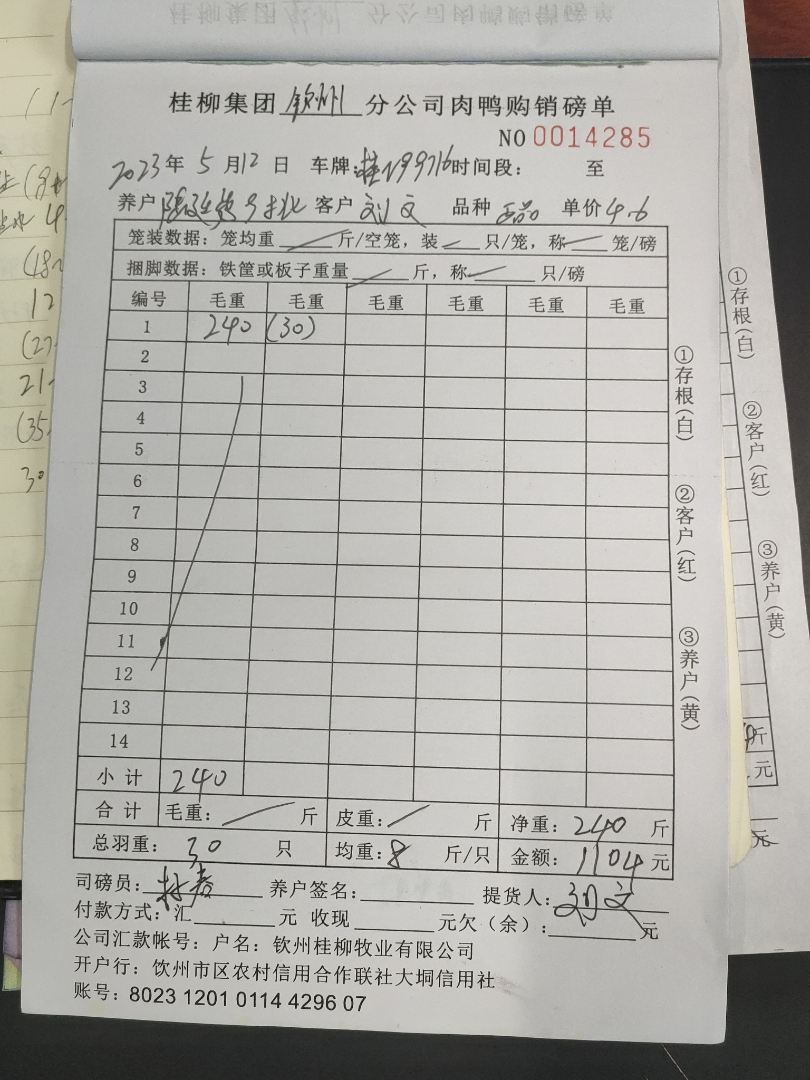 桂柳集团 钦州 分公司肉鸭购销磅单
NO 0014285
2023年 5月12日 车牌: 99716 时间段: 至
养户 客户 刘文 品种 单价 4.6
笼装数据: 笼均重 斤/空笼, 装 只/笼, 称 笼/磅
捆脚数据: 铁筐或板子重量 斤, 称 只/磅
编号 毛重 毛重 毛重 毛重 毛重 毛重
1 240 (30)
2
3
4
5
6
7
8
9
10
11
12
13
14
小计 240
合计 毛重: 斤 皮重: 斤 净重: 240 斤
总羽重: 30 只 均重: 8 斤/只 金额: 1104 元
司磅员: 养户签名: 提货人: 刘文
付款方式: 汇 元 收现 元欠(余): 元
公司汇款帐号: 户名: 钦州桂柳牧业有限公司
开户行: 钦州市区农村信用合作联社大垌信用社
账号: 8023 1201 0114 4296 07
①存根(白)
②客户(红)
③养户(黄)
①存根(白)
②客户(红)
③养户(黄)
斤
元
元